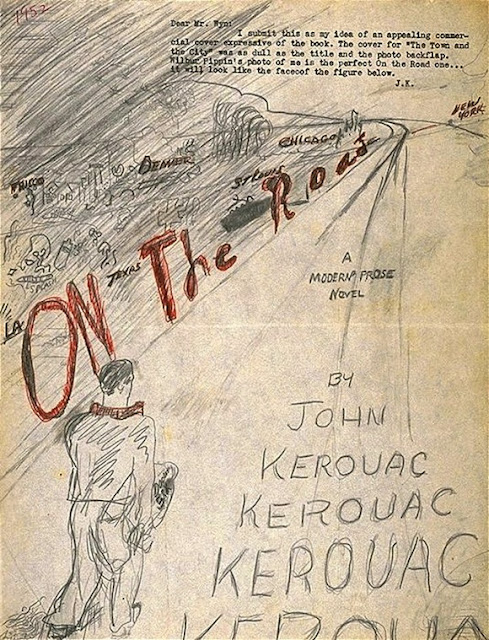 1952
Dear Mr. Wyn:
I submit this as my idea of an appealing commer-
cial cover expressive of the book. The cover for "The Town and
the City" was as dull as the title and the photo backflap.
Wilbur Pippin's photo of me is the perfect On the Road one...
it will look like the faceof the figure below.
J.K.
NEW YORK
CHICAGO
DENVER
ST LOUIS
FRISCO
TEXAS
LA
ON The Road
A
MODERN PROSE
NOVEL
BY
JOHN
KEROUAC
KEROUAC
KEROUAC
KEROUA